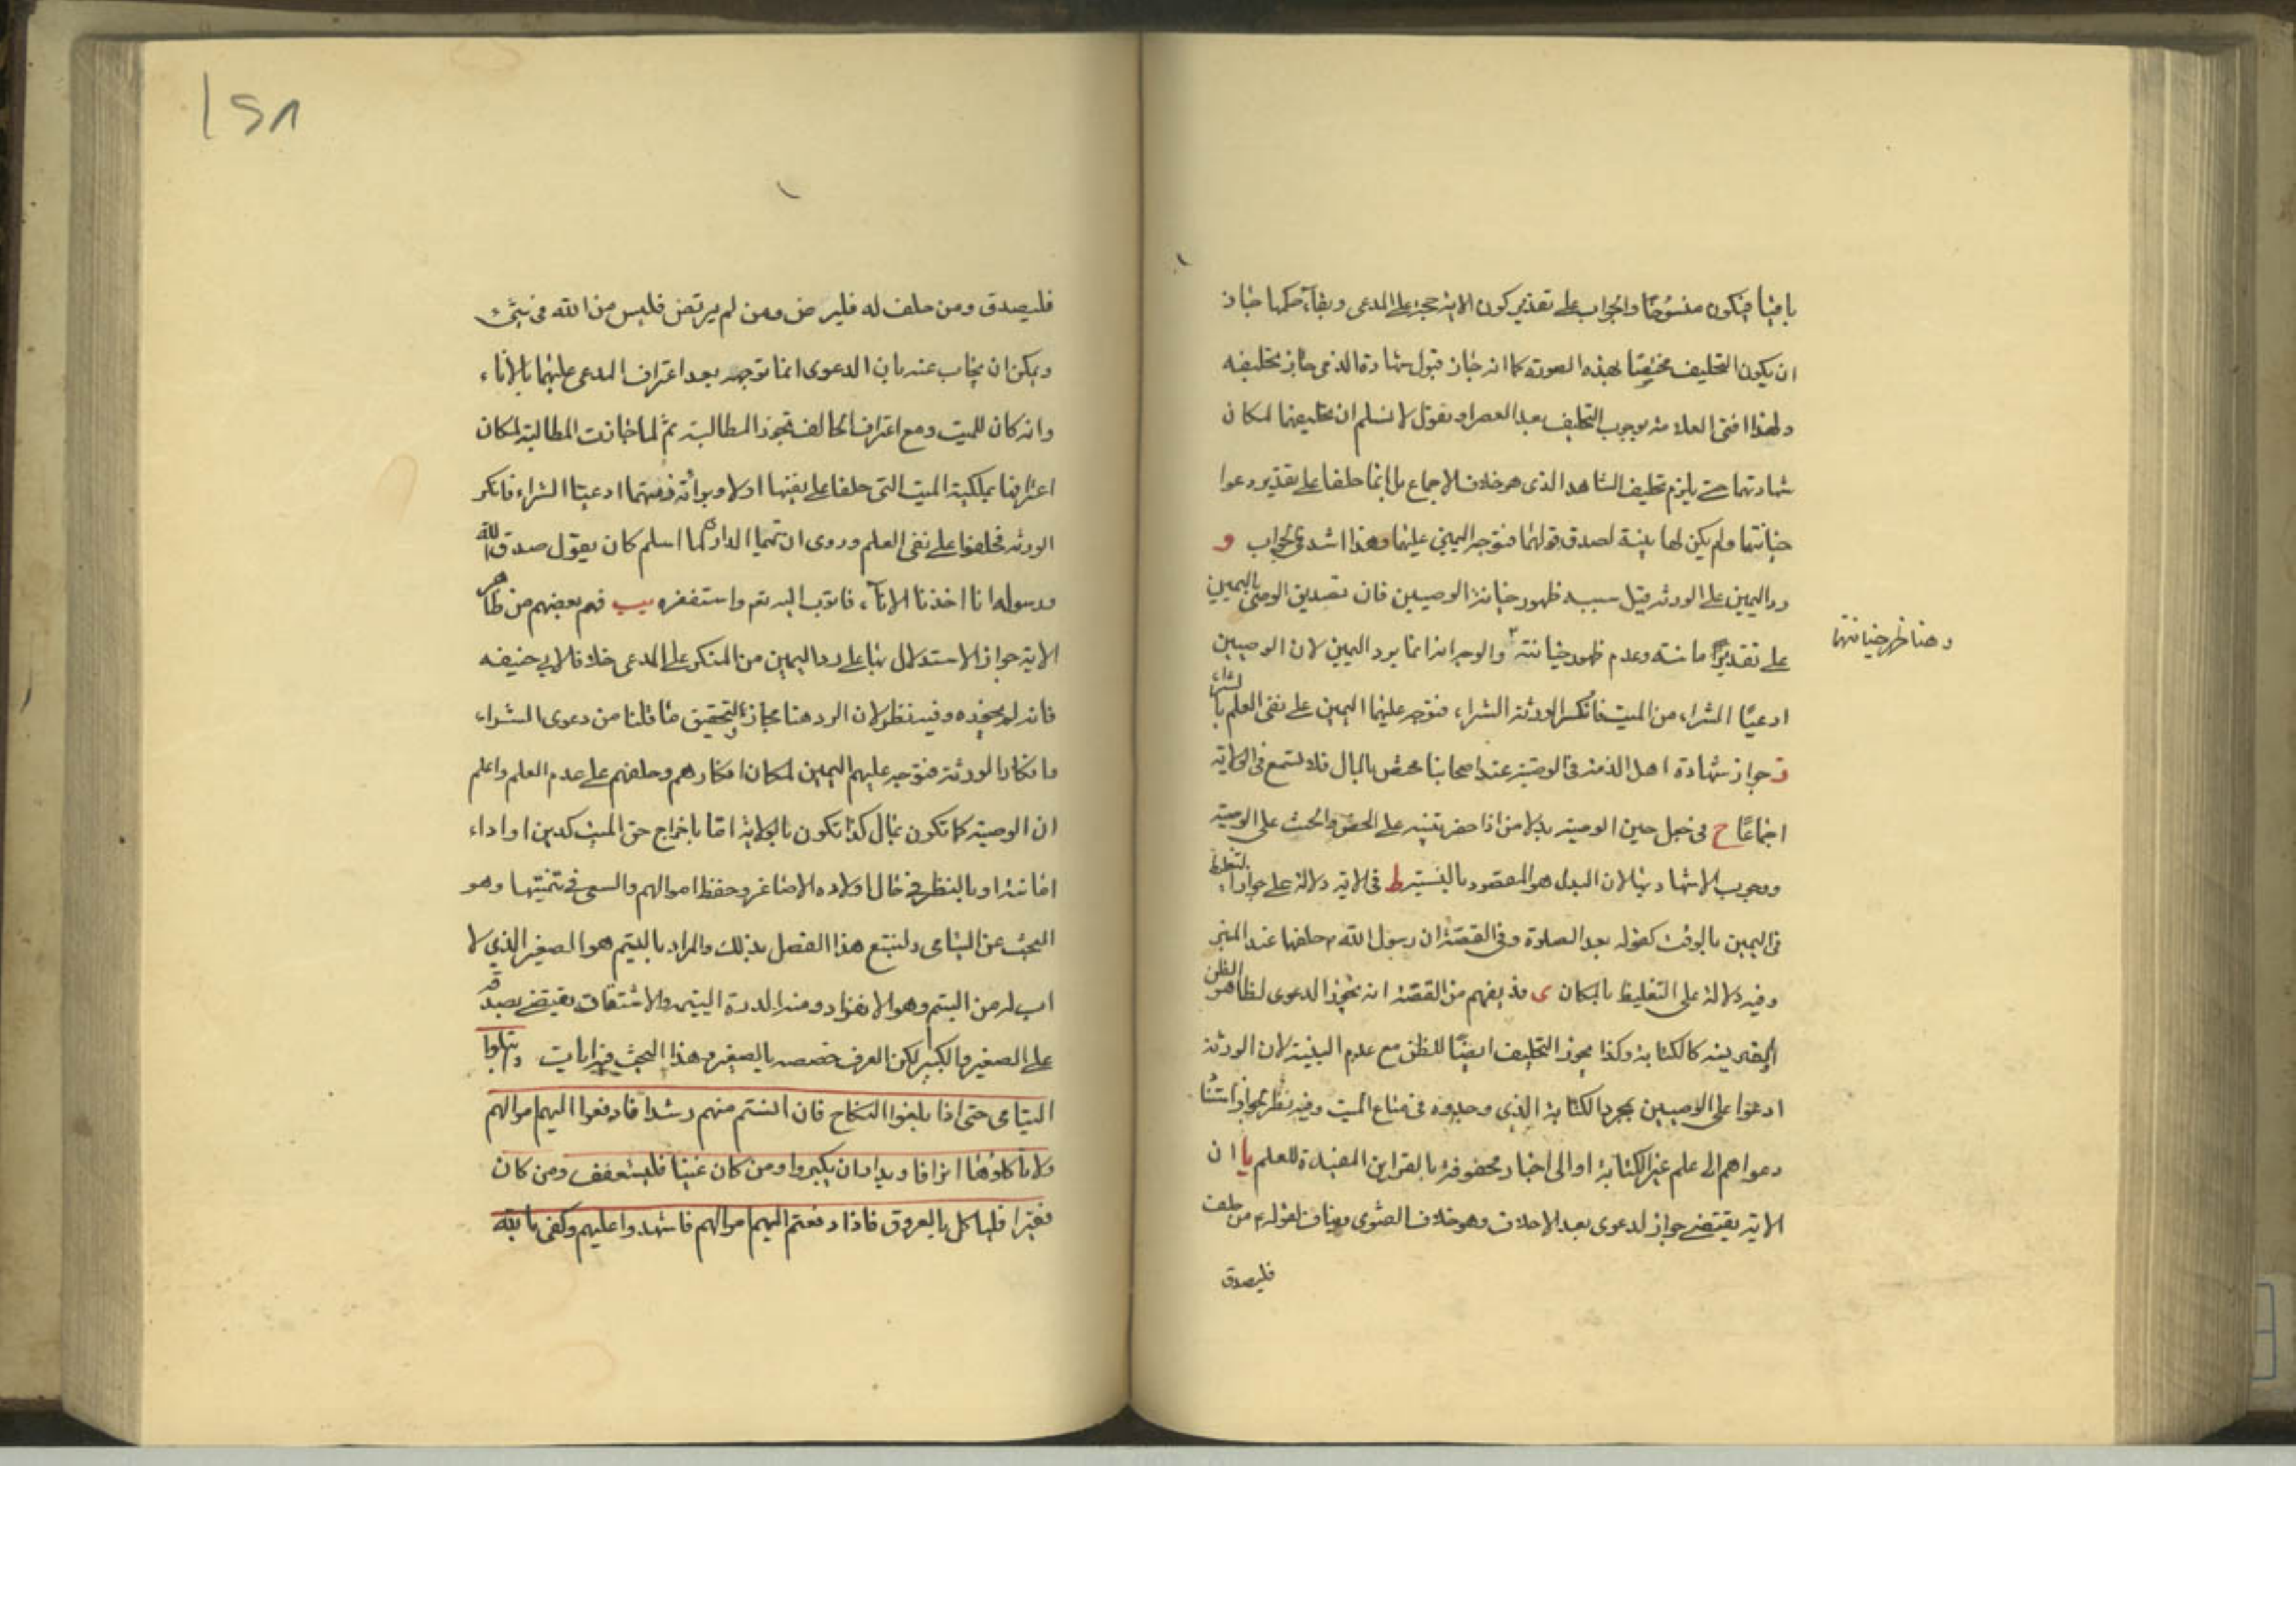 باقيا فيكون منسوخا والجواب على تقدير كون الاية حجة على المدعى وبقآء حكمها جاز
ان يكون التحليف مختصا بهذه الصورة كما انه جاز قبول شهادة الذمى جاز تحليفه
ولهذا افتى العلامة بوجوب التحليف بعد العصر او نقول لا نسلم ان تحليفهما لمكان
شهادتهما حتى يلزم تحليف الشاهد الذى هو خلاف الاجماع بل انما حلفا على تقدير دعوا
خيانتهما ولم يكن لها بينة لصدق قولهما فتوجه اليمين عليهما وهذا اسد فى الجواب و
رد اليمين على الورثة قيل سببه ظهور خيانة الوصيين فان تصديق الوصى باليمين
على تقدير امانته وعدم ظهور خيانته والوجه انه انما يرد اليمين لان الوصيين
وهنا ظهر خيانتهما
ادعيا الشراء من الميت فانكر الورثة الشراء فتوجه عليهما اليمين على نفى العلم بالشراء
ز جواز شهادة اهل الذمة فى الوصية عند اصحابنا مختص بالمال فلا تسمع فى الولاية
اجماعا ح فى جعل حين الوصية بدلا من اذا حضر تنبيه على الحض والحث على الوصية
ووجوب الاشهاد بها لان البدل هو المقصود بالنسبة ط فى الاية دلالة على جواز التغليظ
فى اليمين بالوقت كقوله بعد الصلوة وفى القصة ان رسول الله ص حلفهما عند المنبر
وفيه دلالة على التغليظ بالمكان ى قد يفهم من القصة انه تجوز الدعوى لظاهر الظن
القرينة كالكتابة وكذا يجوز التحليف ايضا للظن مع عدم البينة لان الورثة
ادعوا على الوصيين بمجرد الكتابة الذى وجدوه فى متاع الميت وفيه نظر لجواز استنا
دعواهم الى علم غير الكتابة او الى اخبار محفوفة بالقراين المفيدة للعلم يا ان
الاية يقتضى جواز الدعوى بعد الاحلاف وهو خلاف الفتوى ومناف لقوله ع من حلف
فليصدق
١٢٨
فليصدق ومن حلف له فليرض ومن لم يرتض فليس من الله فى شىء
ويمكن ان يجاب عنه بان الدعوى انما توجهه بعد اعتراف المدعى عليهما بالاناء
وانه كان للميت ومع اعتراف الحالف تجوز المطالبة ثم لما جازت المطالبة لمكان
اعترافنا بملكية الميت التى حلفا على نفيها اولا وبرائة ذمتهما ادعيا الشراء فانكر
الورثة فحلفوا على نفى العلم وروى ان تميما الدارى لما اسلم كان يقول صدق الله
ورسوله انا اخذنا الانآء فاتوب اليه تعم واستغفره يب فهم بعضهم من ظاهر
الاية جواز الاستدلال بها على رد اليمين من المنكر على المدعى خلافا لابى حنيفه
فانه لم يجوزه وفيه نظر لان الرد هنا مجاز والتحقيق ما قلنا من دعوى الشراء
وانكار الورثة فتوجه عليهم اليمين لمكان انكارهم وحلفهم على عدم العلم واعلم
ان الوصية كما تكون بمال كذا تكون بالولاية اما باخراج حق الميت كدين او اداء
امانة او بالنظر فى حال اولاده الاصاغر وحفظ اموالهم والسعى فى تنميتها وهو
البحث عن اليتامى ولنتبع هذا الفصل بذلك والمراد باليتيم هو الصغير الذى لا
اب له من اليتم وهو الانفراد ومنه الدرة اليتيمة والاشتقاق يقتضى بصدقه
على الصغير والكبير لكن العرف خصصه بالصغير وهذا البحث فيه ايات وابتلوا
اليتامى حتى اذا بلغوا النكاح فان انستم منهم رشدا فادفعوا اليهم اموالهم
ولا تاكلوها اسرافا وبدارا ان يكبروا ومن كان غنيا فليستعفف ومن كان
فقيرا فلياكل بالمعروف فاذا دفعتم اليهم اموالهم فاشهدوا عليهم وكفى بالله